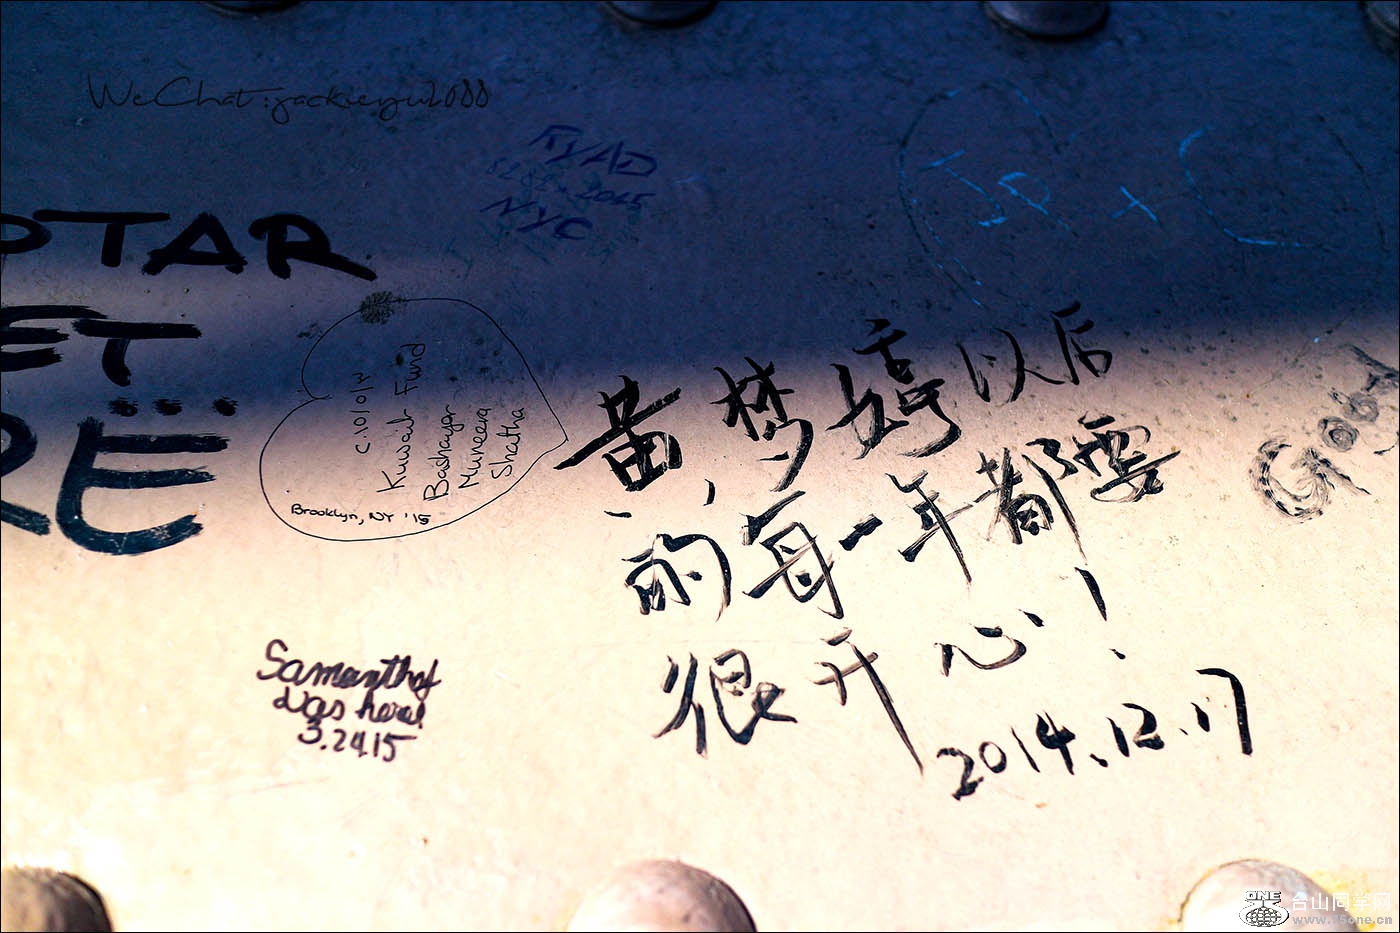 WeChat:jackieyu2088
RYAD
NYC
JP + C
OTAR
ET
RË
c.10/0/11
Kuwait Fund
Bashayer
Muneera
Shatha
Brooklyn, NY '15
黄梦婷以后
的每一年都要
很开心!
2014.12.17
Samantha
was here!
3.24.15
台山同学网
www.tsone.cn